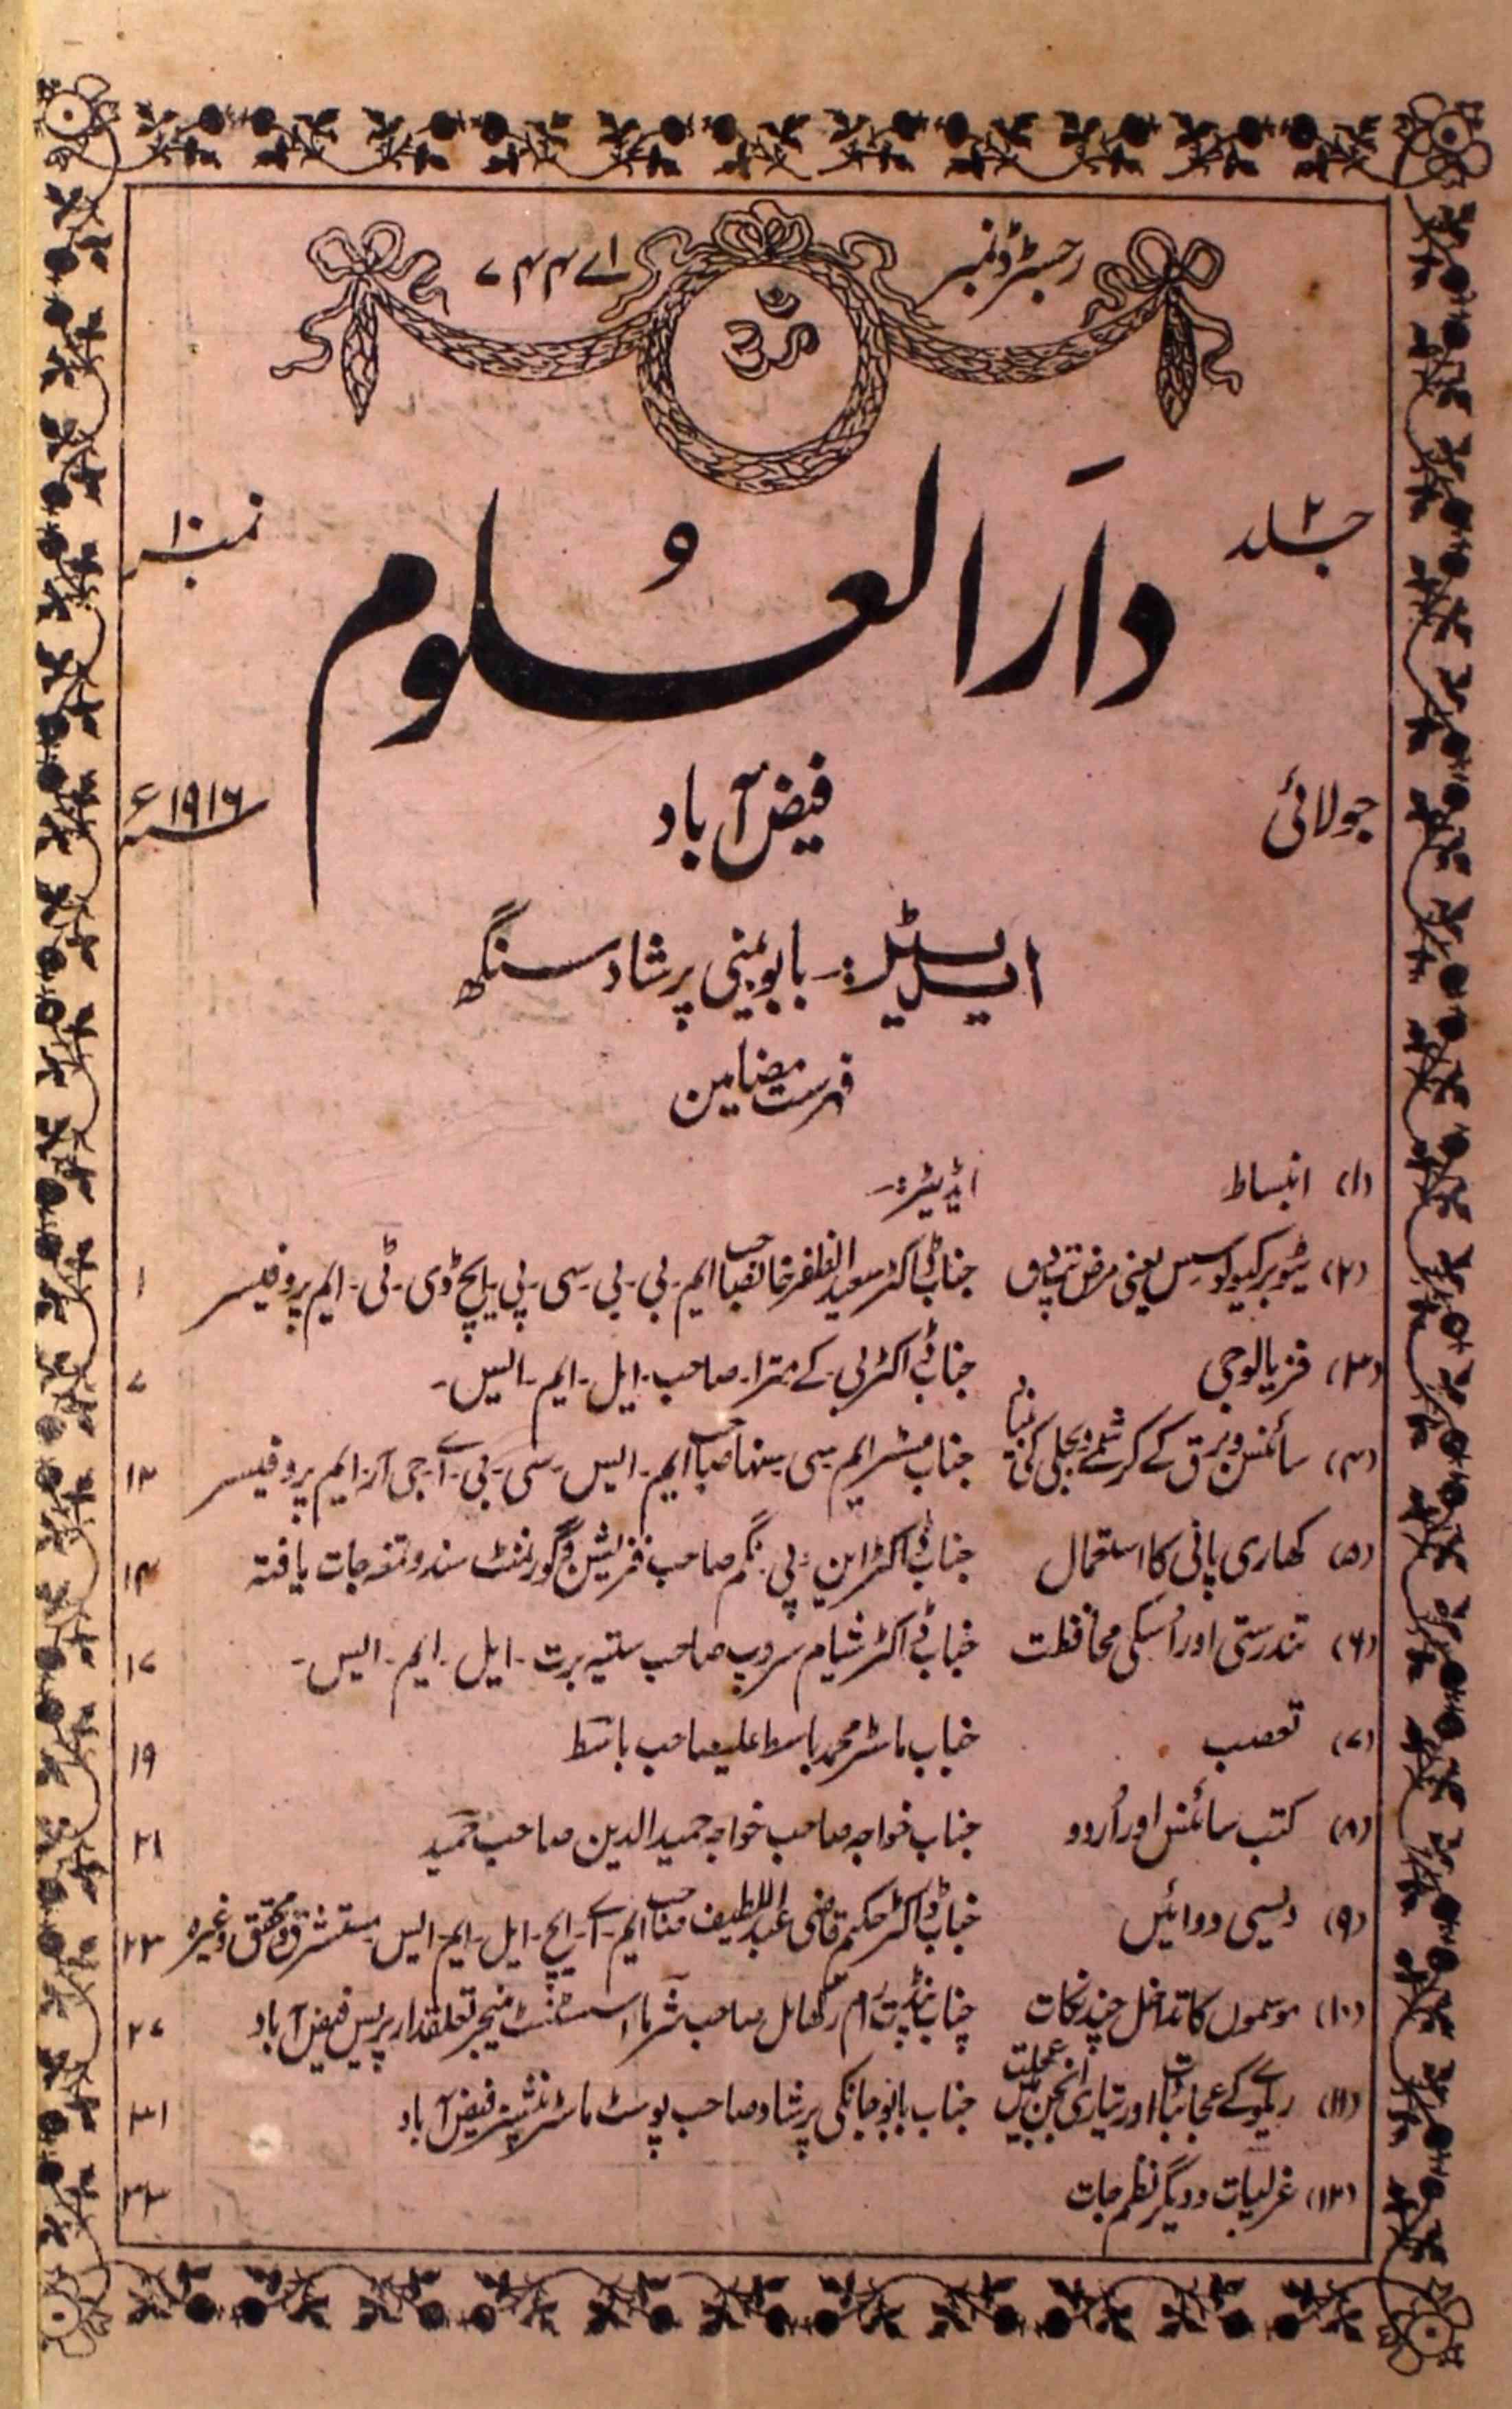 رجسٹرڈ نمبر اے ۴۴۷
ॐ
جلد ۲
نمبر ۱۰
دَارالعُلوم
فیض آباد
جولائی
سنہ ۱۹۱۶ء
ایڈیٹر:۔ بابو بینی پرشاد سنگھ
فہرست مضامین
(۱) انبساط ایڈیٹر:۔
(۲) ٹیوبرکیولوسس یعنی مرض تپ دق جناب ڈاکٹر سعید الظفر خانصاحب ایم۔ بی۔ بی۔ سی۔ پی۔ ایچ ڈی۔ ٹی۔ ایم پروفیسر ۱
(۳) فزیالوجی جناب ڈاکٹر بی۔ کے مترا۔ صاحب۔ ایل۔ ایم۔ ایس۔ ۷
(۴) سائنس و برق کے کرشمے و بجلی کی جناب مسٹر ایم سی سنہا صاحب ایم۔ ایس۔ سی۔ بی۔ اے۔ جی آر۔ ایم پروفیسر ۱۳
(۵) کھاری پانی کا استعمال جناب ڈاکٹر این۔ پی۔ نگم صاحب فزیشن و گورنمنٹ سند و تمغہ جات یافتہ ۱۴
(۶) تندرستی اور اُسکی محافظت جناب ڈاکٹر شیام سروپ صاحب ستیہ برت۔ ایل۔ ایم۔ ایس۔ ۱۷
(۷) تعصب جناب ماسٹر محمد باسط علیصاحب باسط ۱۹
(۸) کتب سائنس اور اُردو جناب خواجہ صاحب خواجہ حمید الدین صاحب حمید ۲۱
(۹) دیسی دوائیں جناب ڈاکٹر حکیم قاضی عبد اللطیف صاحب ایم۔ اے۔ ایچ۔ ایل۔ ایم۔ ایس مستشرق و محقق وغیرہ ۲۳
(۱۰) موسموں کا تداخل چند نکات جناب پنڈت رام رگھائل صاحب شرما اسسٹنٹ منیجر تعلقدار پریس فیض آباد ۲۷
(۱۱) ریلوے کے عجائبات اور تیاری انجن میں عجلت جناب بابو جانکی پرشاد صاحب پوسٹ ماسٹر پنشنر فیض آباد ۳۱
(۱۲) غزلیات و دیگر نظم جات ۳۳